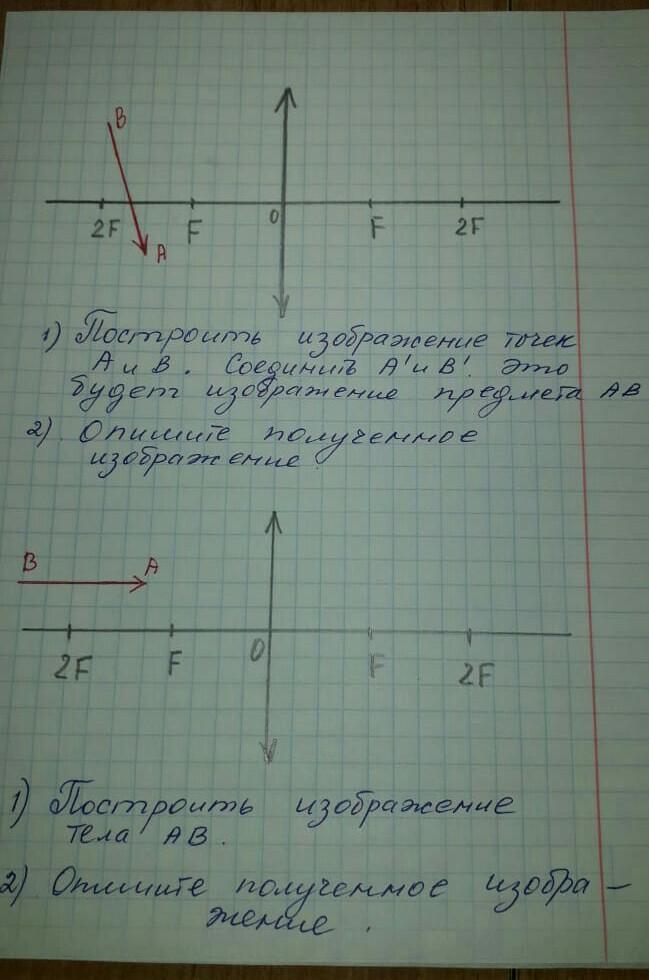 B
2F F O F 2F
A
1) Построить изображение точек
A и B. Соединить A' и B'. Это
будет изображение предмета AB
2) Опишите полученное
изображение.
B A
2F F O F 2F
1) Построить изображение
тела AB.
2) Опишите полученное изобра-
жение.